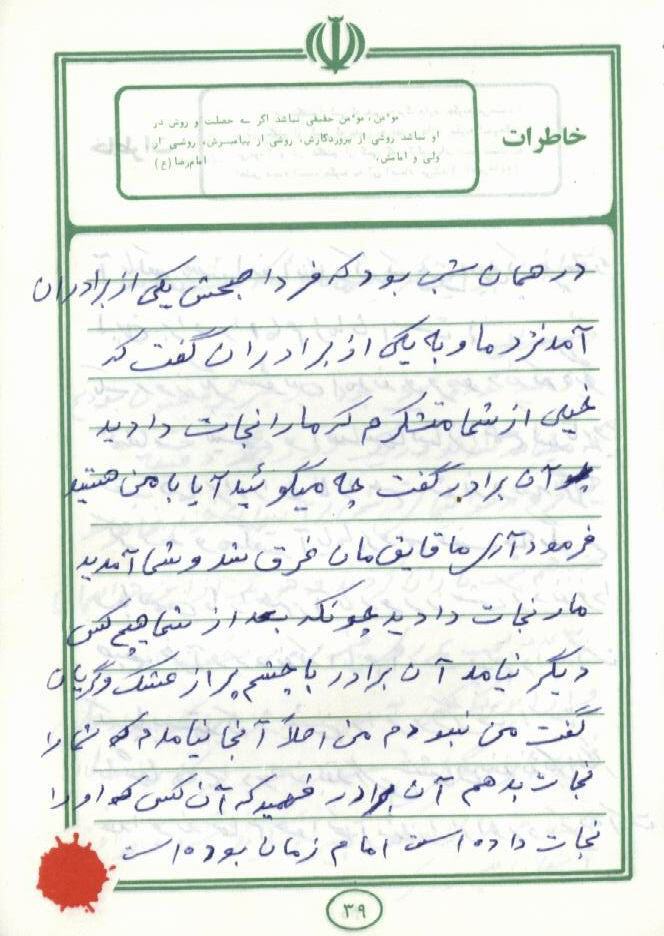 خاطرات
مؤمن، مؤمن حقیقی نباشد اگر سه خصلت و روش در
او نباشد روشی از پروردگارش، روشی از پیامبرش، روشی از
ولی و امامش.
امام رضا (ع)
در همان شب بود که فردا صبحش یکی از برادران
آمد نزد ما و به یکی از برادران گفت که
خیلی از شما متشکرم که ما را نجات دادید
آن برادر گفت چه میگوئید آیا با من هستید
فرمود آری ما قایق مان غرق شد و شما آمدید
مار نجات دادید چونکه بعد از شما هیچ کس
دیگر نیامد آن برادر با چشم پر از عشک و گریان
گفت من نبودم من اصلاً آنجا نیامدم که شما را
نجات بدهم آن برادر فهمید که آن کس که او را
نجات داده است امام زمان بوده است
۳۹